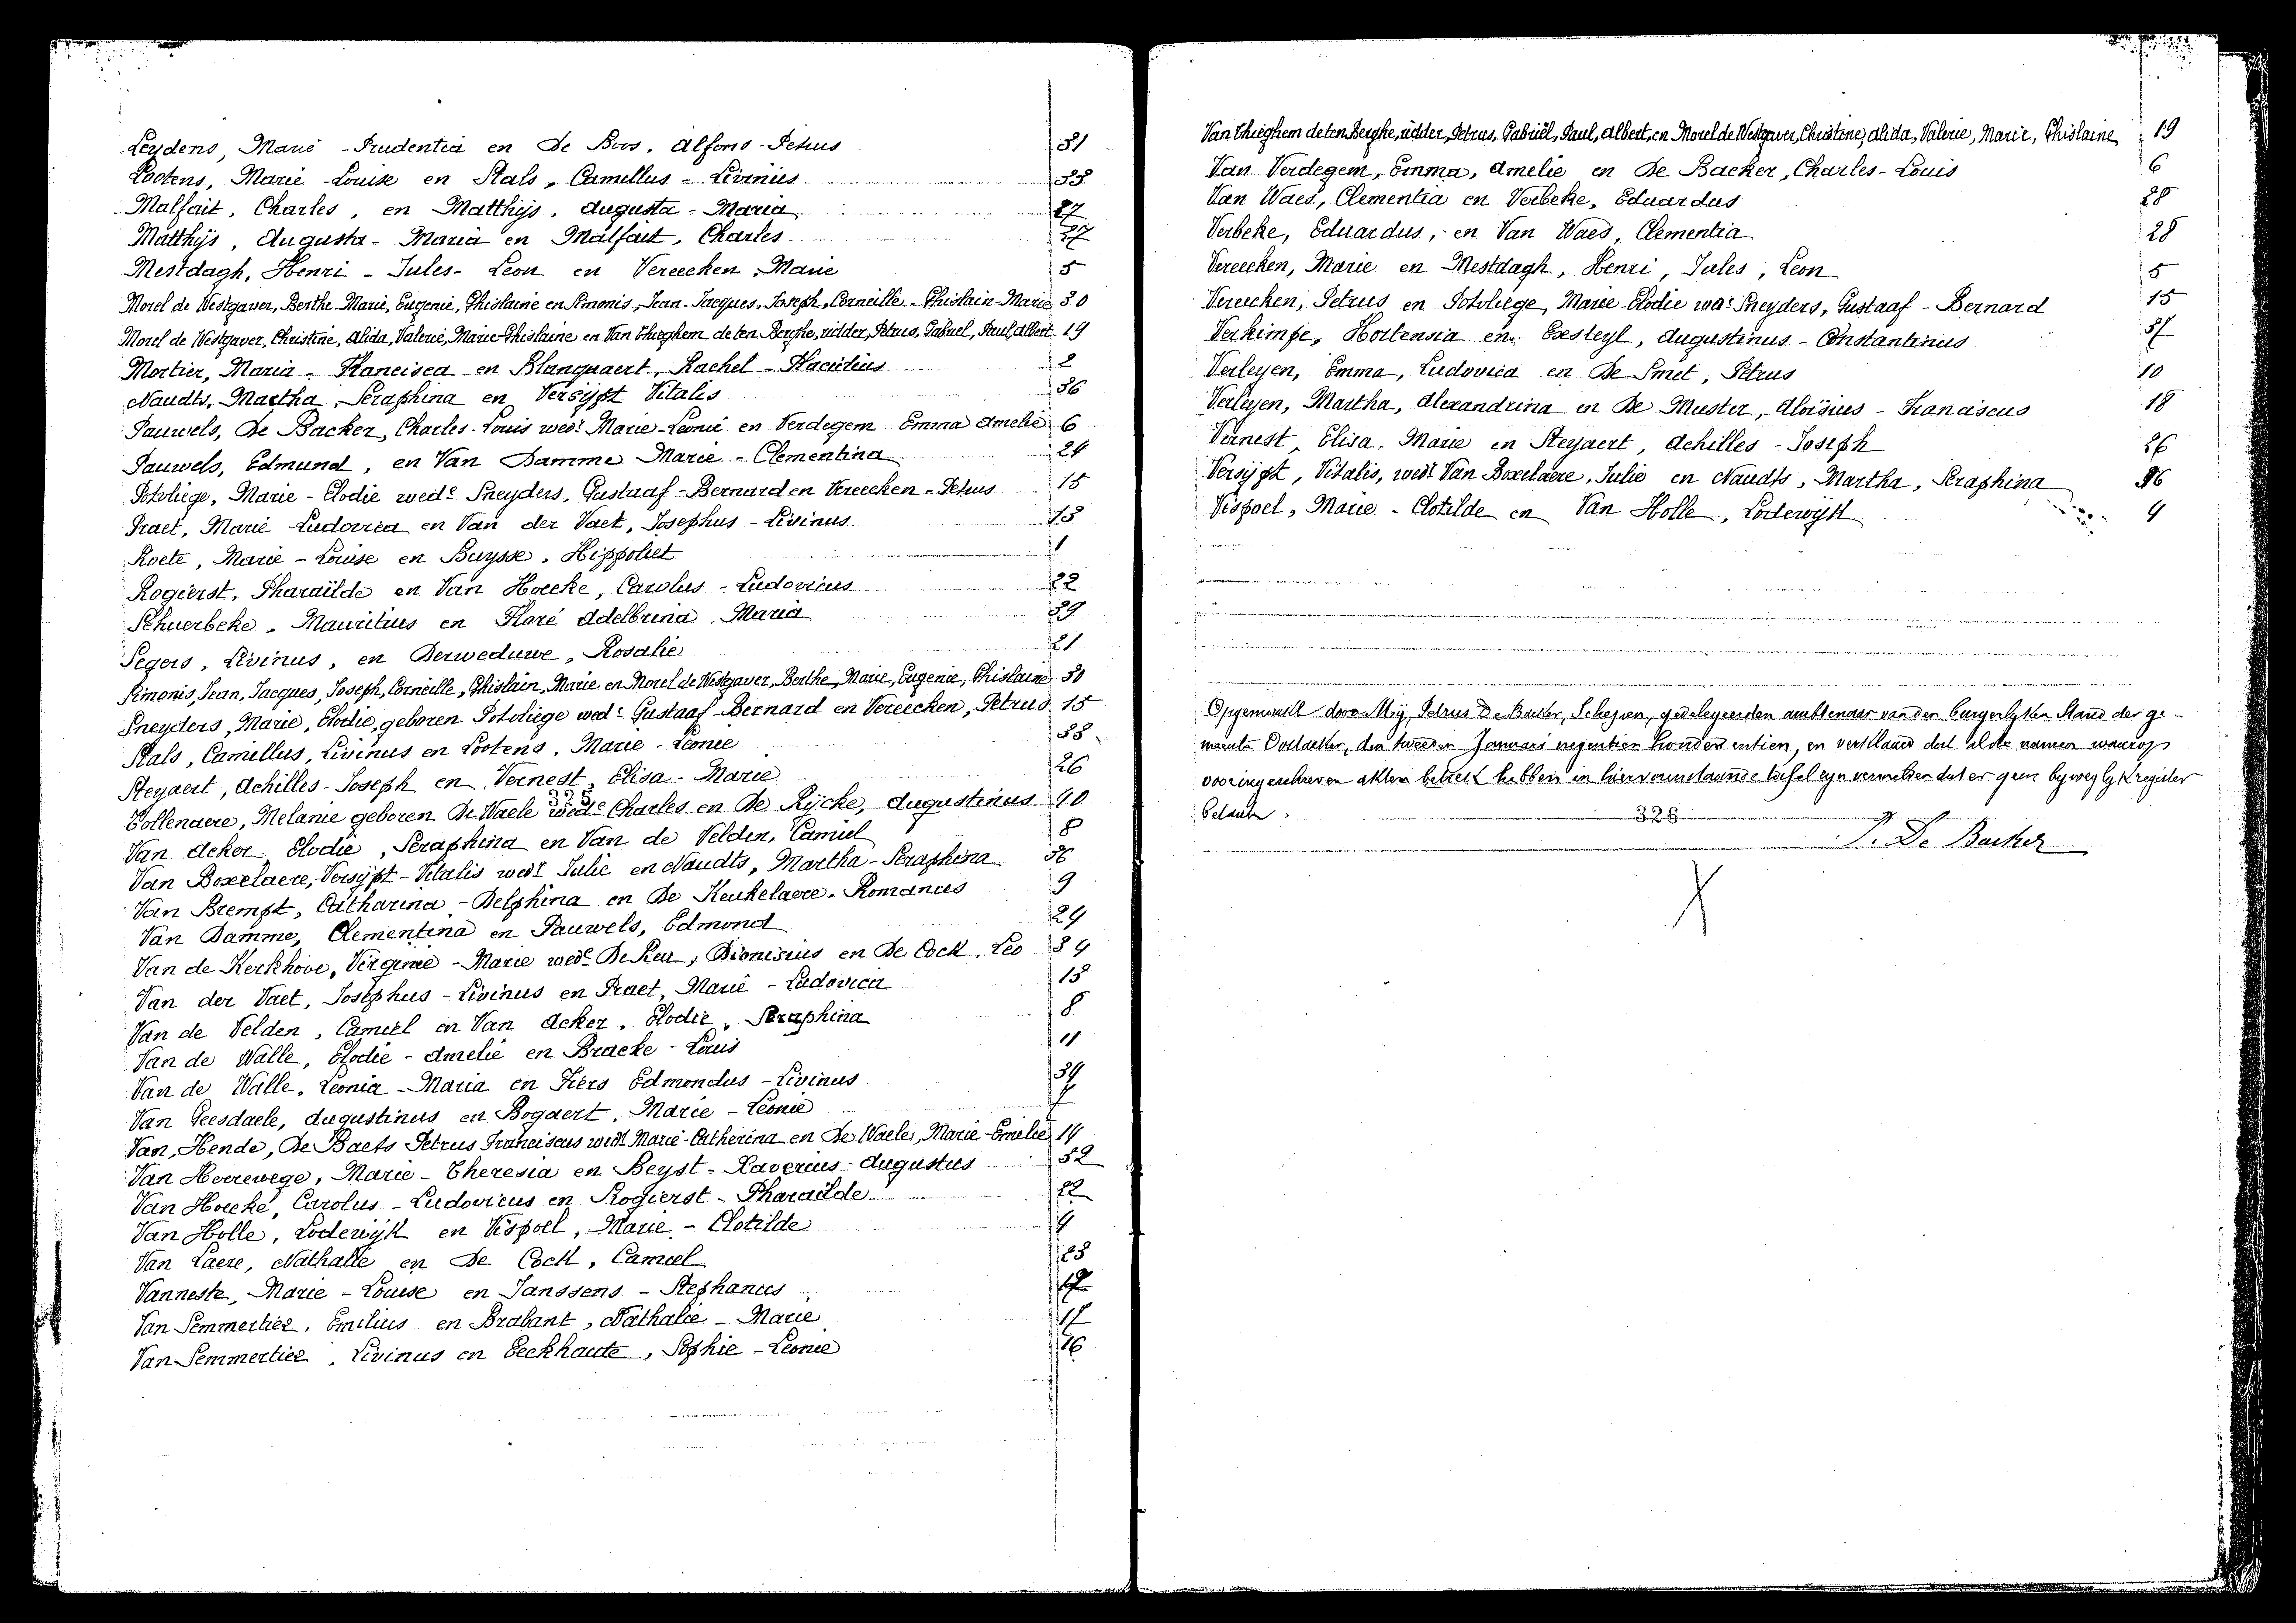 Leydens, Marie - Prudentia en De Boos, Alfons - Petrus 31
Lootens, Marie - Louise en Stals, Camellus - Livinus 33
Malfait, Charles, en Matthijs, Augusta - Maria 27
Matthijs, Augusta - Maria en Malfait, Charles 27
Mestdagh, Henri - Jules - Leon en Vereecken, Marie 5
Morel de Westgaver, Berthe - Marie, Eugenie, Ghislaine en Simonis, Jean - Jacques, Joseph, Corneille - Ghislain - Marie 30
Morel de Westgaver, Christine, Alida, Valerie, Marie - Ghislaine en Van Thieghem de ten Berghe, ridder, Petrus, Gabriel, Paul, Albert 19
Mortier, Maria - Francisca en Blanquaert, Rachel - Placidius 2
Naudts, Martha, Seraphina en Versijpt Vitalis 36
Pauwels, De Backer, Charles - Louis wedr Marie - Leonie en Verdegem Emma Amelie 6
Pauwels, Edmund, en Van Damme Marie - Clementina 24
Potvliege, Marie - Elodie wede Sneyders, Gustaaf - Bernard en Vereecken - Petrus 15
Praet, Marie - Ludovica en Van der Vaet, Josephus - Livinus 13
Roete, Marie - Louise en Buysse, Hippoliet 1
Rogierst, Pharaïlde en Van Hoecke, Carolus - Ludovicus 22
Schuerbeke, Mauritius en Floré Adelbrina, Maria 39
Segers, Livinus, en Derweduwe, Rosalie 21
Simonis, Jean, Jacques, Joseph, Corneille, Ghislain, Marie en Morel de Westgaver, Berthe, Marie, Eugenie, Ghislaine 30
Sneyders, Marie, Elodie, geboren Potvliege wede Gustaaf - Bernard en Vereecken, Petrus 15
Stals, Camillus, Livinus en Lootens, Marie - Leonie 33
Steyaert, Achilles - Joseph en Vernest, Elisa - Marie 26
325
Tollenaere, Melanie geboren De Waele wede Charles en De Rijcke, Augustinus 40
Van Acker Elodie, Seraphina en Van de Velden, Camiel 8
Van Boxelaere, Versijpt - Vitalis wedr Julie en Naudts, Martha - Seraphina 36
Van Brempt, Catharina - Delphina en De Keukelaere, Romanus 9
Van Damme, Clementina en Pauwels, Edmond 24
Van de Kerkhove, Virginie - Marie wede De Reu, Dionisius en De Cock, Leo 34
Van der Vaet, Josephus - Livinus en Praet, Marie - Ludovica 13
Van de Velden, Camiel en Van Acker, Elodie, Seraphina 8
Van de Walle, Elodie - Amelie en Bracke - Louis 11
Van de Walle, Leonia - Maria en Fiers Edmondus - Livinus
Van Geesdaele, Augustinus en Bogaert, Marie - Leonie 7
Van Hende, De Baets Petrus Franciscus wedr Marie - Catherina en De Waele, Marie - Emelie 14
Van Heerewege, Marie - Theresia en Beyst - Xaverius - Augustus 32
Van Hoecke, Carolus - Ludovicus en Rogierst - Pharaïlde 22
Van Holle, Lodewijk en Vispoel, Marie - Clotilde 4
Van Laere, Nathalie en De Cock, Camiel
Vanneste, Marie - Louise en Janssens - Stephanus
Van Semmertier, Emilius en Brabant, Nathalie - Marie 17
Van Semmertier, Livinus en Eeckhaute, Sophie - Leonie 16
Van Thieghem de ten Berghe, ridder, Petrus, Gabriël, Paul, Albert, en Morel de Westgaver, Christine, Alida, Valerie, Marie, Ghislaine 19
Van Verdegem, Emma, Amelie en De Backer, Charles - Louis 6
Van Waes, Clementia en Verbeke, Eduardus 28
Verbeke, Eduardus, en Van Waes, Clementia 28
Vereecken, Marie en Mestdagh, Henri, Jules, Leon 5
Vereecken, Petrus en Potvliege, Marie - Elodie wede Sneyders, Gustaaf - Bernard 15
Verkimpe, Hortensia en Exsteyl, Augustinus - Constantinus 37
Verleyen, Emma, Ludovica en De Smet, Petrus 10
Verleyen, Martha, Alexandrina en De Muster, Aloïsius - Franciscus 18
Vernest, Elisa, Marie en Steyaert, Achilles - Joseph 26
Versijpt, Vitalis, wedr Van Boxelaere, Julie en Naudts, Martha, Seraphina 36
Vispoel, Marie - Clotilde en Van Holle, Lodewijk 4
Opgemaakt door Mij, Petrus De Backer, Schepen, gedelegeerden ambtenaar van den burgerlyken Stand der ge-
meente Oostacker, den tweeden Januari negentien honderd entien, en verklaard dat al de namen waarop
vooringeschreven akten betrek hebben in hiervoorstaande tafel zyn vermeld en dat er geen bywegelyk register
bestaat.
326
P. De Backer